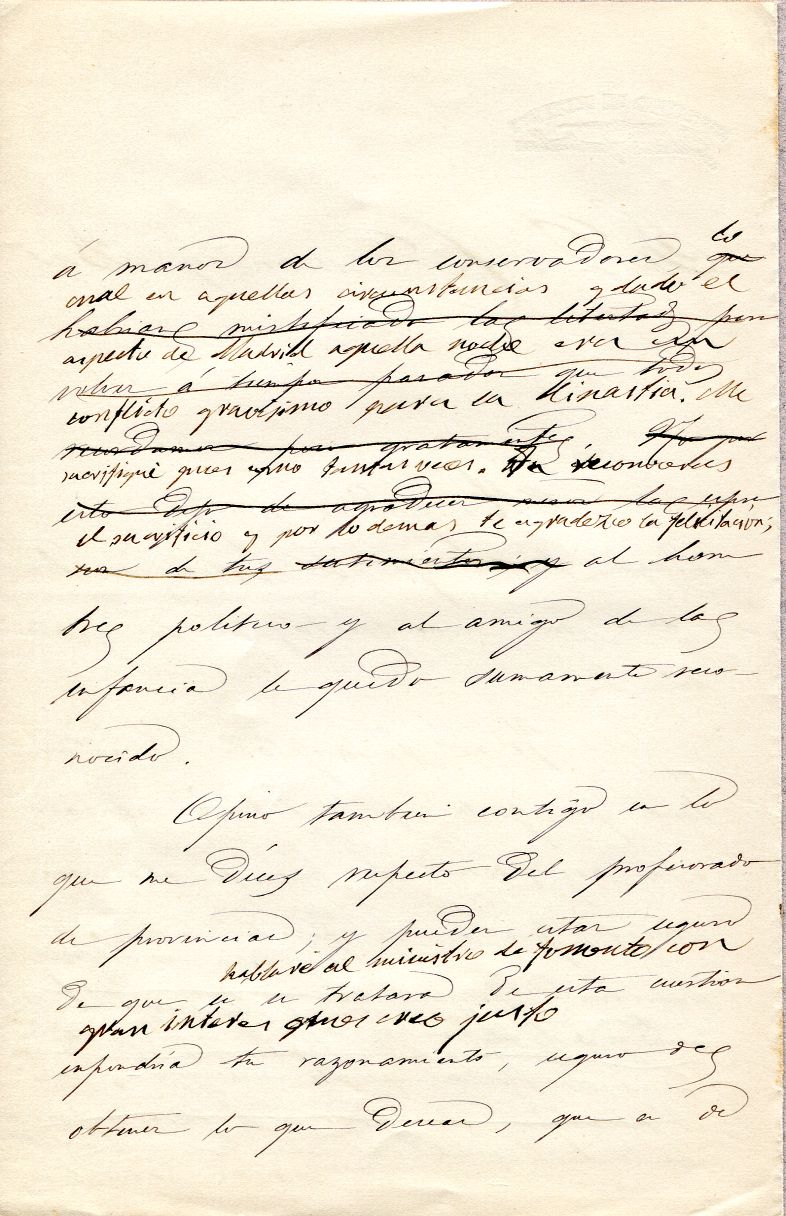 á manos de los conservadores lo que
cual en aquellas circunstancias y dado el
habrian mistificado las libertad para
aspecto de Madrid aquella noche era un
volver á tiempos pasados que todos
conflicto gravisimo para la Dinastia. Me
recordamos poco gratamente.
sacrifiqué pues como tantas veces. Tu reconoceras
esto
el sacrificio y por lo demas te agradezco la felicitación;
de tus sentimientos; y al hom
bre politico y al amigo de la
infancia le quedo sumamente reco-
nocido.
Opino tambien contigo en lo
que me dices respecto del profesorado
de provincias; y puedes estar seguro
hablaré al ministro de fomento con
de que si se tratara de esta cuestion
gran interes pues creo justo
expondria tu razonamiento, seguro de
obtener lo que deseas, que es de